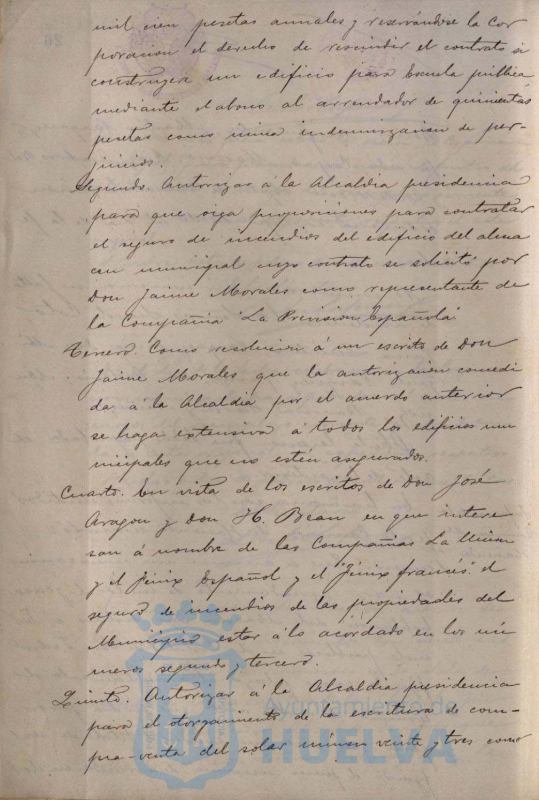 mil cien pesetas anuales y reservándose la Cor
poración el derecho de rescindir el contrato si
construyera un edificio para Escuela pública
mediante el abono al arrendador de quinientas
pesetas como única indemnización de per-
juicios.
Segundo. Autorizar á la Alcaldia presidencia
para que oiga proposiciones para contratar
el seguro de incendios del edificio del alma
cen municipal cuyo contrato se solicitó por
Don Jaime Morales como representante de
la Compañia "La Prevision Española"
Tercero. Como resolucion á un escrito de Don
Jaime Morales que la autorización concedi
da á la Alcaldia por el acuerdo anterior
se haga extensiva á todos los edificios mu
nicipales que no estén asegurados.
Cuarto. En vista de los escritos de Don José
Aragon y Don H. Bean en que intere
san á nombre de las Compañias La Union
y el Fénix Español y el "Fénix francés" el
seguro de incendios de las propiedades del
Municipio estar á lo acordado en los nú
meros segundo y tercero.
Quinto. Autorizar á la Alcaldia presidencia
para el otorgamiento de la escritura de com-
pra-venta del solar número veinte y tres como
Ayuntamiento de
HUELVA